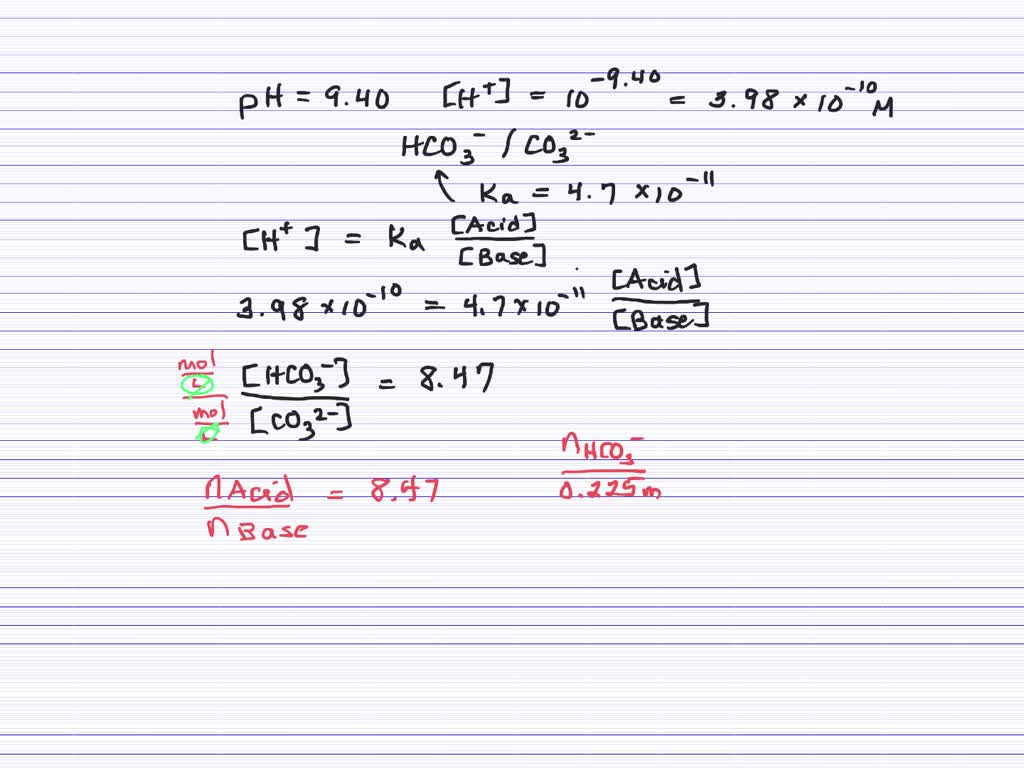 pH = 9.40 [H⁺] = 10⁻⁹·⁴⁰ = 3.98 × 10⁻¹⁰ M
HCO₃⁻ / CO₃²⁻
↖ Ka = 4.7 × 10⁻¹¹
[H⁺] = Ka [Acid] / [Base]
3.98 × 10⁻¹⁰ = 4.7 × 10⁻¹¹ [Acid] / [Base]
mol/L / mol/L [HCO₃⁻] / [CO₃²⁻] = 8.47
n Acid / n Base = 8.47 n HCO₃⁻ / 0.225 m